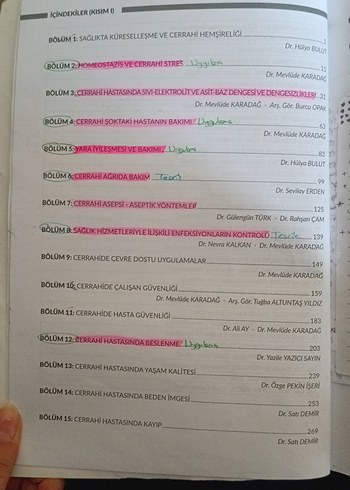 İÇİNDEKİLER (KISIM I)
BÖLÜM 1: SAĞLIKTA KÜRESELLEŞME VE CERRAHİ HEMŞİRELİĞİ
Dr. Hülya BULUT
BÖLÜM 2: HOMEOSTAZİS VE CERRAHİ STRES Uygulama 11
Dr. Mevlüde KARADAĞ
BÖLÜM 3: CERRAHİ HASTASINDA SIVI-ELEKTROLİT VE ASİT-BAZ DENGESİ VE DENGESİZLİKLERİ 31
Dr. Mevlüde KARADAĞ - Arş. Gör. Burcu OPAK
BÖLÜM 4: CERRAHİ ŞOKTAKİ HASTANIN BAKIMI Uygulama 63
Dr. Mevlüde KARADAĞ
BÖLÜM 5: YARA İYİLEŞMESİ VE BAKIMI Uygulama 83
Dr. Hülya BULUT
BÖLÜM 6: CERRAHİ AĞRIDA BAKIM Teorik 99
Dr. Sevilay ERDEN
BÖLÜM 7: CERRAHİ ASEPSİ - ASEPTİK YÖNTEMLER 125
Dr. Gülengün TÜRK - Dr. Rahşan ÇAM
BÖLÜM 8: SAĞLIK HİZMETLERİYLE İLİŞKİLİ ENFEKSİYONLARIN KONTROLÜ Teorik 139
Dr. Nevra KALKAN - Dr. Mevlüde KARADAĞ
BÖLÜM 9: CERRAHİDE ÇEVRE DOSTU UYGULAMALAR 149
Dr. Mevlüde KARADAĞ
BÖLÜM 10: CERRAHİDE ÇALIŞAN GÜVENLİĞİ 159
Dr. Mevlüde KARADAĞ - Arş. Gör. Tuğba ALTUNTAŞ YILDIZ
BÖLÜM 11: CERRAHİDE HASTA GÜVENLİĞİ 183
Dr. Ali AY - Dr. Mevlüde KARADAĞ
BÖLÜM 12: CERRAHİ HASTASINDA BESLENME Uygulama 203
Dr. Yazile YAZICI SAYIN
BÖLÜM 13: CERRAHİ HASTASINDA YAŞAM KALİTESİ 239
Dr. Özge PEKİN İŞERİ
BÖLÜM 14: CERRAHİ HASTASINDA BEDEN İMGESİ 253
Dr. Satı DEMİR
BÖLÜM 15: CERRAHİ HASTASINDA KAYIP 269
Dr. Satı DEMİR